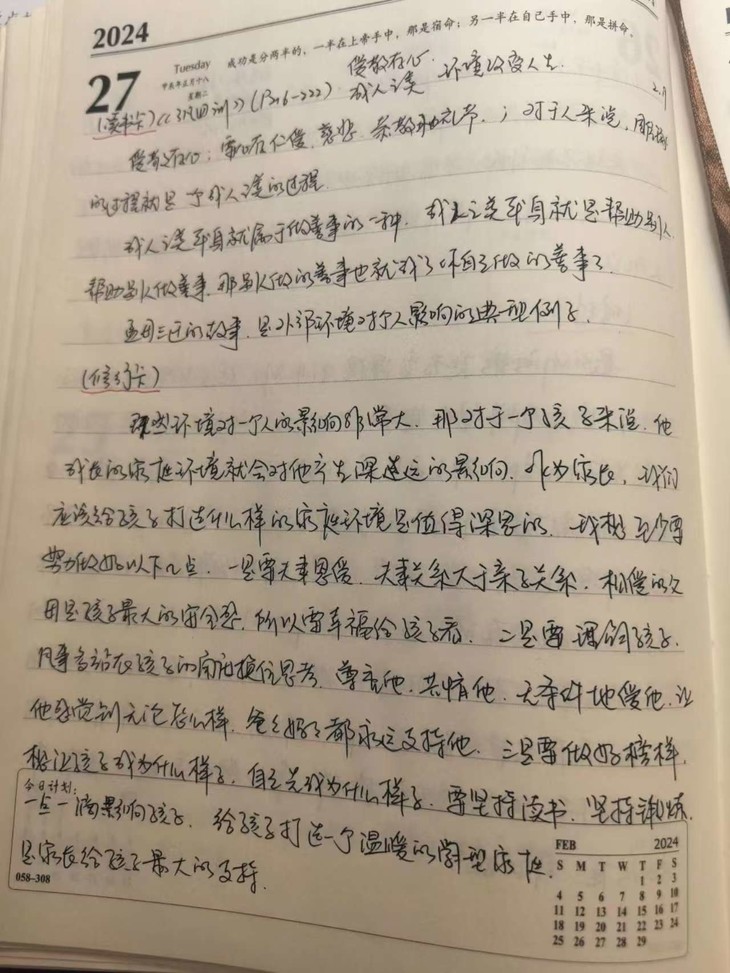 2024
27
Tuesday
甲辰年正月十八
星期二
成功是分两半的,一半在上帝手中,那是宿命;另一半在自己手中,那是拼命。
爱敬存心. 环境改变人生.
成人之美
2.月
(读书卡)《了凡四训》(P216-222)
爱敬存心:常怀仁爱、慈悲、恭敬和礼节.;对于人来说,
的过程就是一个成人之美的过程.
成人之美本身就属于做善事的一种. 成人之美本身就是帮助别人.
帮助别人做善事.那别人做的善事也就成了你自己做的善事了.
孟母三迁的故事.是外部环境对个人影响的典型例子.
(修行卡)
既然环境对一个人的影响非常大.那对于一个孩子来说.他
成长的家庭环境就会对他产生深远的影响.作为家长,我们
应该给孩子打造什么样的家庭环境是值得深思的.我想至少要
努力做好以下几点.一是要夫妻恩爱.夫妻关系大于亲子关系.相爱的父
母是孩子最大的安全感.所以要幸福给孩子看.二是要理解孩子.
凡事多站在孩子的角度换位思考.尊重他.共情他.无条件地爱他.让
他感觉到无论怎么样.爸爸妈妈都永远支持他.三是要做好榜样.
想让孩子成为什么样子.自己先成为什么样子.要坚持读书.坚持锻炼.
今日计划:
一点一滴影响孩子.给孩子打造一个温暖的学习型家庭.
是家长给孩子最大的支持.
058-308
FEB 2024
S M T W T F S
1 2 3
4 5 6 7 8 9 10
11 12 13 14 15 16 17
18 19 20 21 22 23 24
25 26 27 28 29